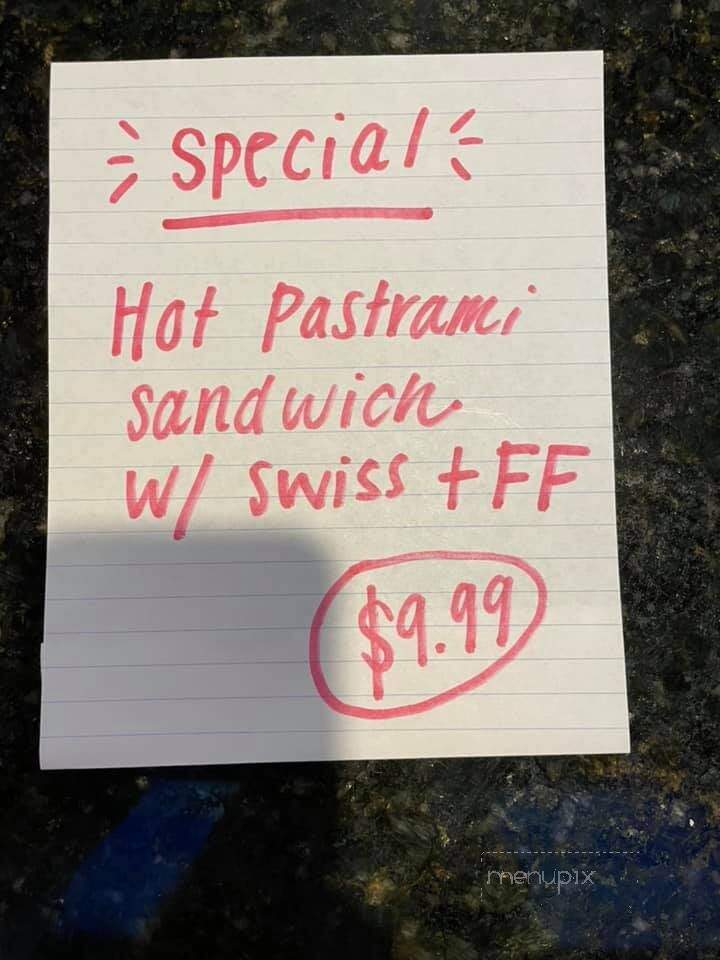 Special
Hot Pastrami
sandwich
w/ swiss + FF
$9.99
menupix